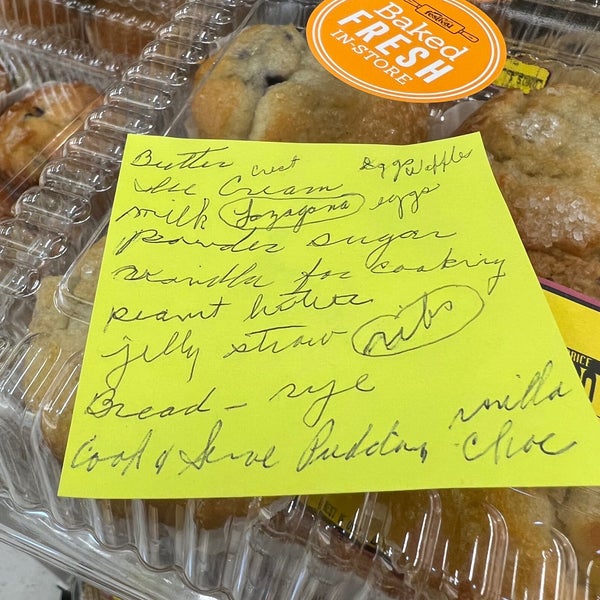 FESTIVAL
Baked
FRESH
IN-STORE
Butter crest Eggo Waffles
Ice Cream
milk Lazagna eggs
powder sugar
vanilla for cooking
peanut butter
jelly straw ribs
Bread - rye
Cook & Serve Pudding vanilla
choc